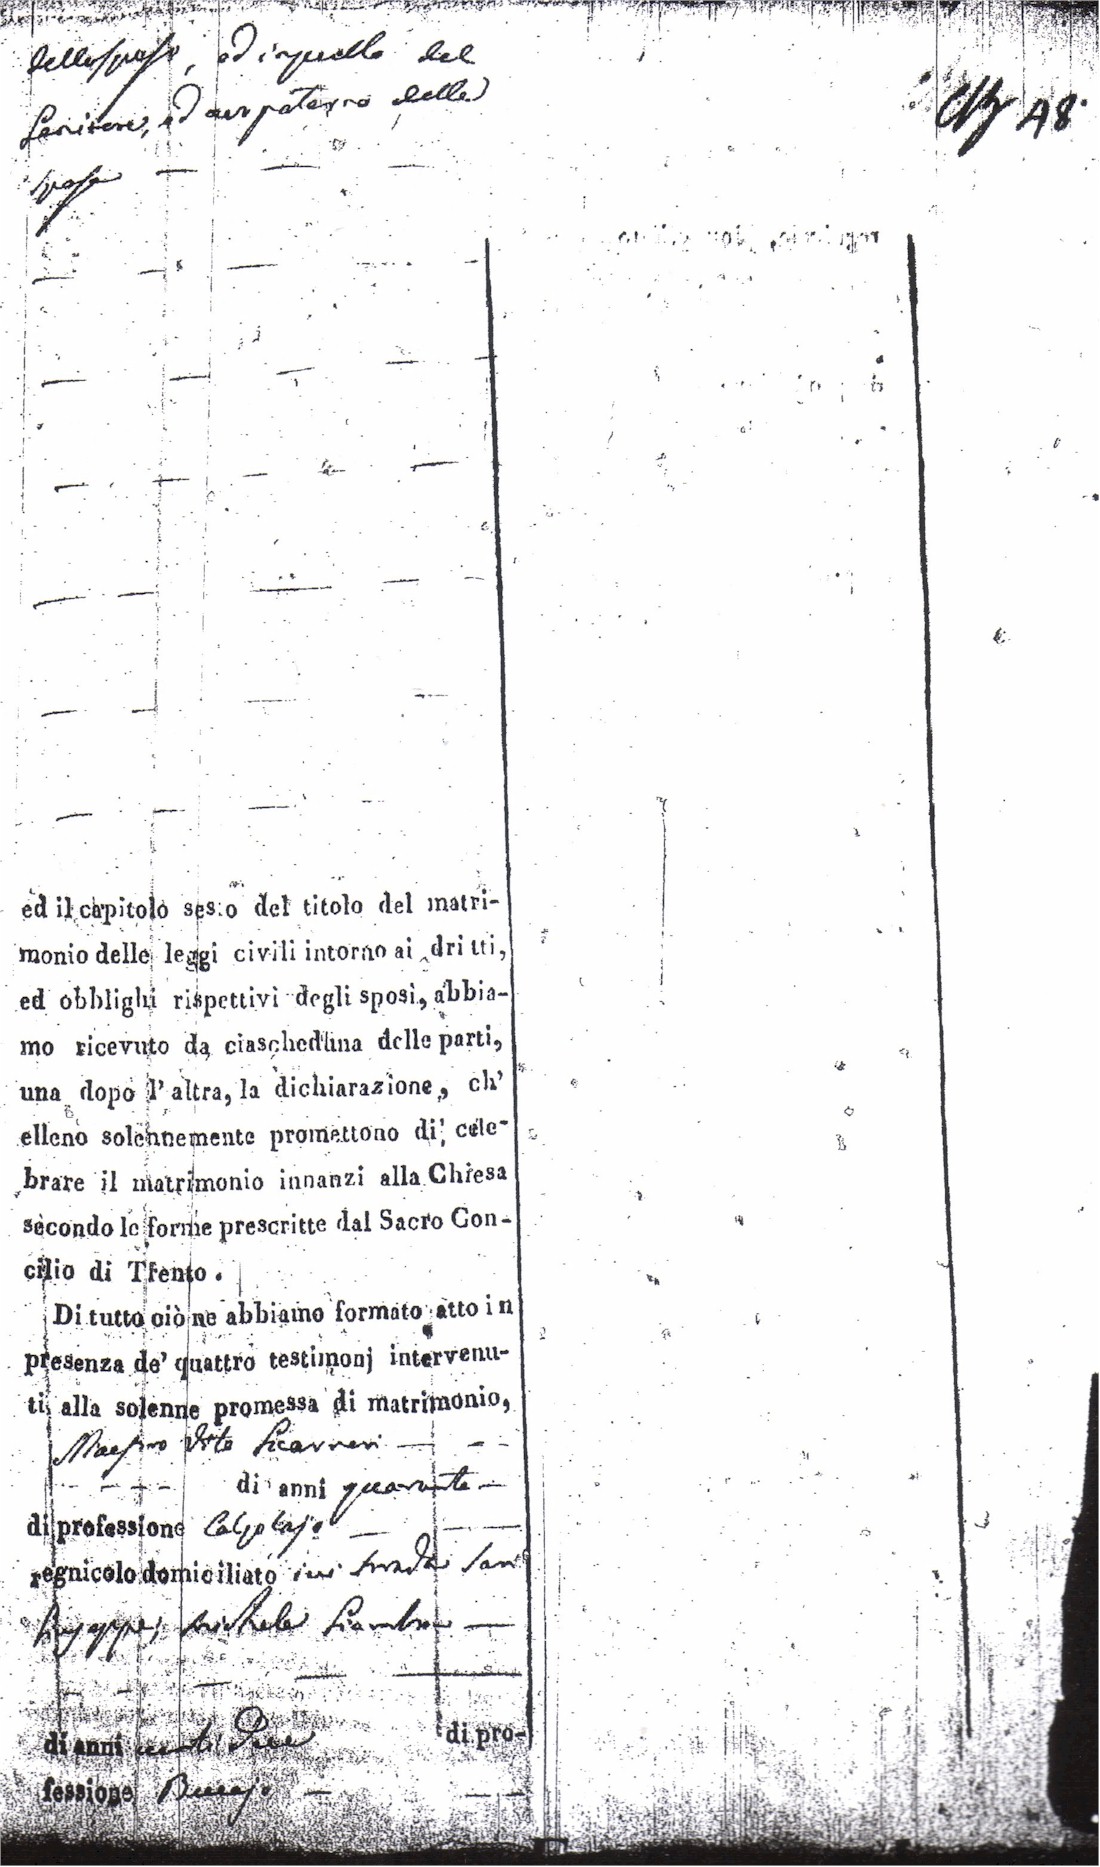 dello sposo, ed in quello del
Genitore, ed avo paterno della
sposa
A8
ed il capitolo sesto del titolo del matri-
monio delle leggi civili intorno ai dritti,
ed obblighi rispettivi degli sposi, abbia-
mo ricevuto da ciascheduna delle parti,
una dopo l'altra, la dichiarazione, ch'
elleno solennemente promettono di cele-
brare il matrimonio innanzi alla Chiesa
secondo le forme prescritte dal Sacro Con-
cilio di Trento.
Di tutto ciò ne abbiamo formato atto in
presenza de' quattro testimonj intervenu-
ti alla solenne promessa di matrimonio,
Maestro Vito
di anni quaranta
di professione Calzolajo
regnicolo domiciliato in strada San
Giuseppe, Michele
di anni di pro-
fessione